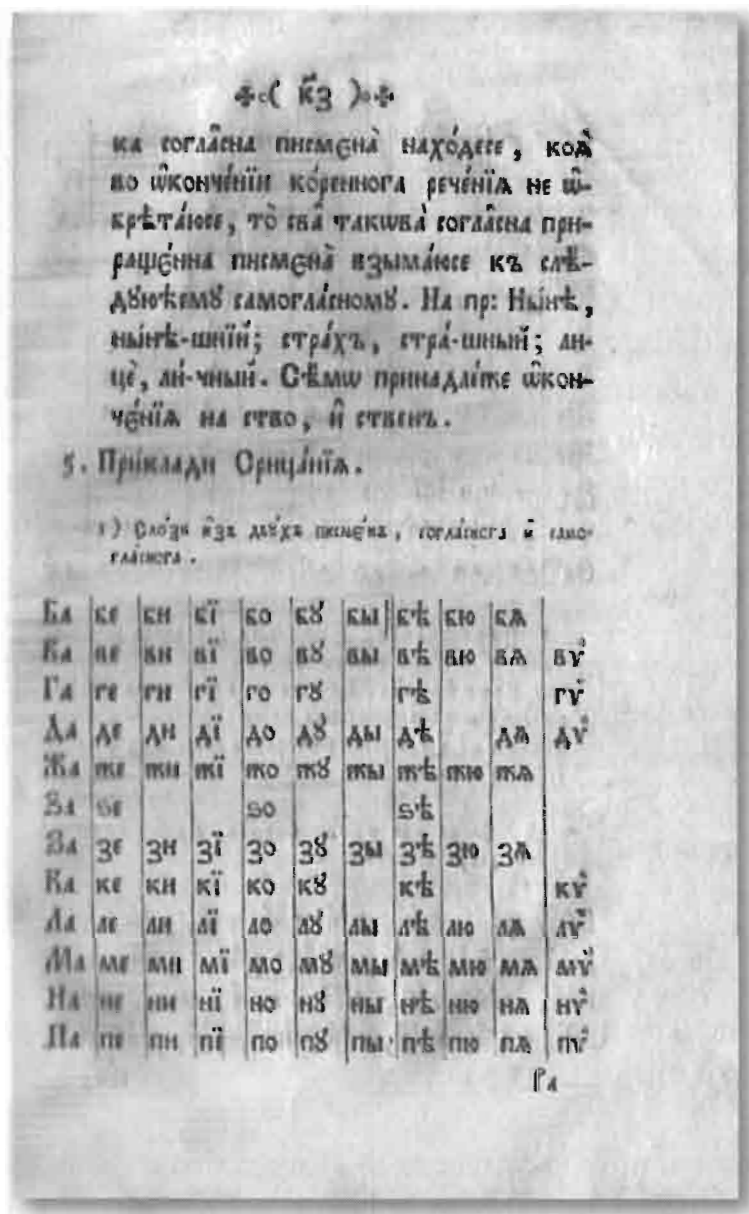 ( к҃з )
ка согла̑сна писмена̀ нахо́десе, коѧ̀
во ѡ҆конче́нїи ко́реннога рече́нїѧ не ѿ-
крѣта́юсе, то̀ сва̑ такѡва̀ согла̑сна при-
раще́нна писмена̀ взыма́юсе къ слѣ-
дꙋ́юћемꙋ самогла́сномꙋ. На пр: Ны́нѣ,
ны́нѣ-шнїй; стра́хъ, стра́-шный; ли-
цѐ, ли́-чный. Сѣмѡ принадле́же ѡ҆кон-
че́нїѧ на ство, и҆ ственъ.
5. При́клади Сриц́анїѧ.
1) Сло́зи и҆зъ два́хъ писме́нъ, согла́снога и҆ само-
гла́снога.
Ба бе би бї бо бꙋ бы бѣ бю бѧ
Ва ве ви вї во вꙋ вы вѣ вю вѧ вѷ
Га ге ги гї го гꙋ гѣ гѷ
Да де ди дї до дꙋ ды дѣ дѧ дѷ
Жа же жи жї жо жꙋ жы жѣ жю жѧ
Ѕа ѕе ѕо ѕѣ
За зе зи зї зо зꙋ зы зѣ зю зѧ
Ка ке ки кї ко кꙋ кѣ кѷ
Ла ле ли лї ло лꙋ лы лѣ лю лѧ лѷ
Ма ме ми мї мо мꙋ мы мѣ мю мѧ мѷ
На не ни нї но нꙋ ны нѣ ню нѧ нѷ
Па пе пи пї по пꙋ пы пѣ пю пѧ пѷ
Ра